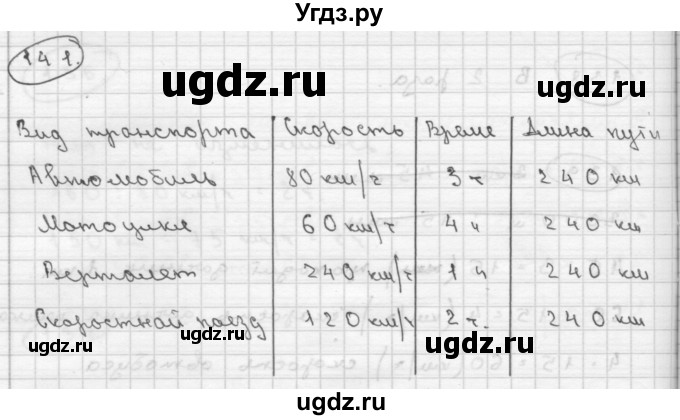 Угдз.ру
141.
ugdz.ru ugdz.ru
Вид транспорта Скорость Време Длина пути
Автомобиль 80 км/ч 3 ч 240 км
ugdz.ru ugdz.ru ugdz.ru
Мотоцикл 60 км/ч 4 ч 240 км
Вертолет 240 км/ч 1 ч 240 км
ugdz.ru ugdz.ru
Скоростной поезд 120 км/ч 2 ч. 240 км
ugdz.ru ugdz.ru ugdz.ru
ugdz.ru ugdz.ru